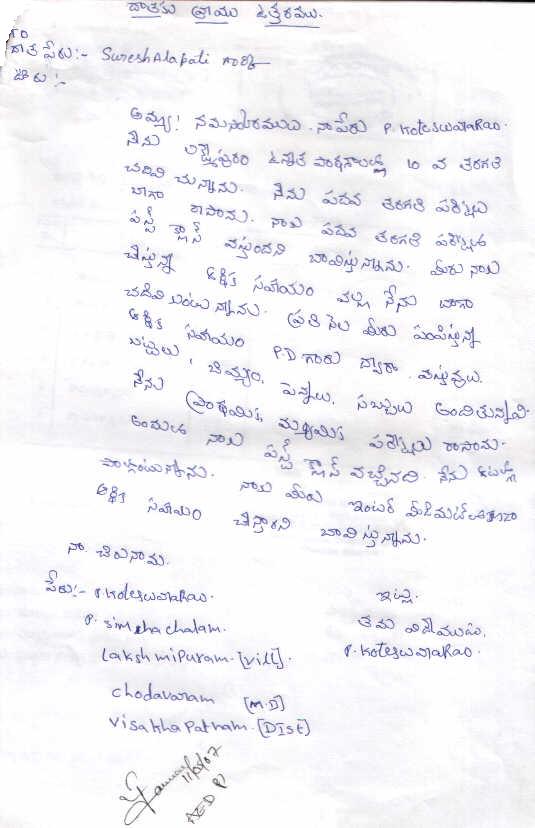 దాతకు వ్రాయు ఉత్తరము.
TO
దాత పేరు:- Suresh Alapati గారికి
ఊరు :-
అయ్యా! నమస్కారములు. నా పేరు P. Koteswara Rao.
నేను లక్ష్మీపురం ఉన్నత పాఠశాలల్లో 10 వ తరగతి
చదివి చున్నాను. నేను పదవ తరగతి పరీక్షలు
బాగా రాసాను. నాకు పదవ తరగతి పరీక్షలో
పస్ట్ క్లాస్ వస్తుందని బావిస్తున్నాను. మీరు నాకు
చేస్తున్న ఆర్థిక సహాయం వల్ల నేను బాగా
చదివి కుంటున్నాను. ప్రతి నెల మీరు పంపిస్తున్న
ఆర్థిక సహాయం P.D గారు ద్వారా వస్తువులు,
బట్టలు, బియ్యం, పెన్నులు, సబ్బులు అందితున్నావి.
నేను ప్రాథమిక, మధ్యమిక పరీక్షలు రాసాను.
అందులో నాకు పస్ట్ క్లాస్ వచ్చినది. నేను
నాకు మీరు ఇంటర్ మీడిమట్
ఆర్థిక సహాయం చేస్తారని బావిస్తున్నాను.
నా చిరునామ.
పేరు:- P. Koteswara Rao.
P. Simha chalam.
Lakshmipuram. [Vill].
Chodavaram [M.D]
Visakhapatnam. [Dist]
ఇట్లు.
తమ విదేయుడు,
P. Koteswara Rao.
11/5/07